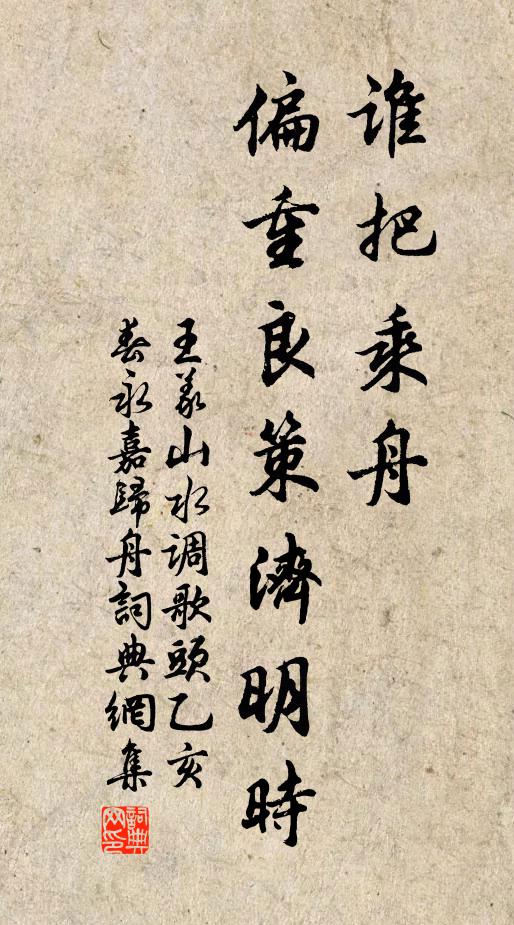 谁把乘舟
偏重良策濟明時
王义山水调歌頭乙亥
春永嘉歸舟詞典網集
詞典网印